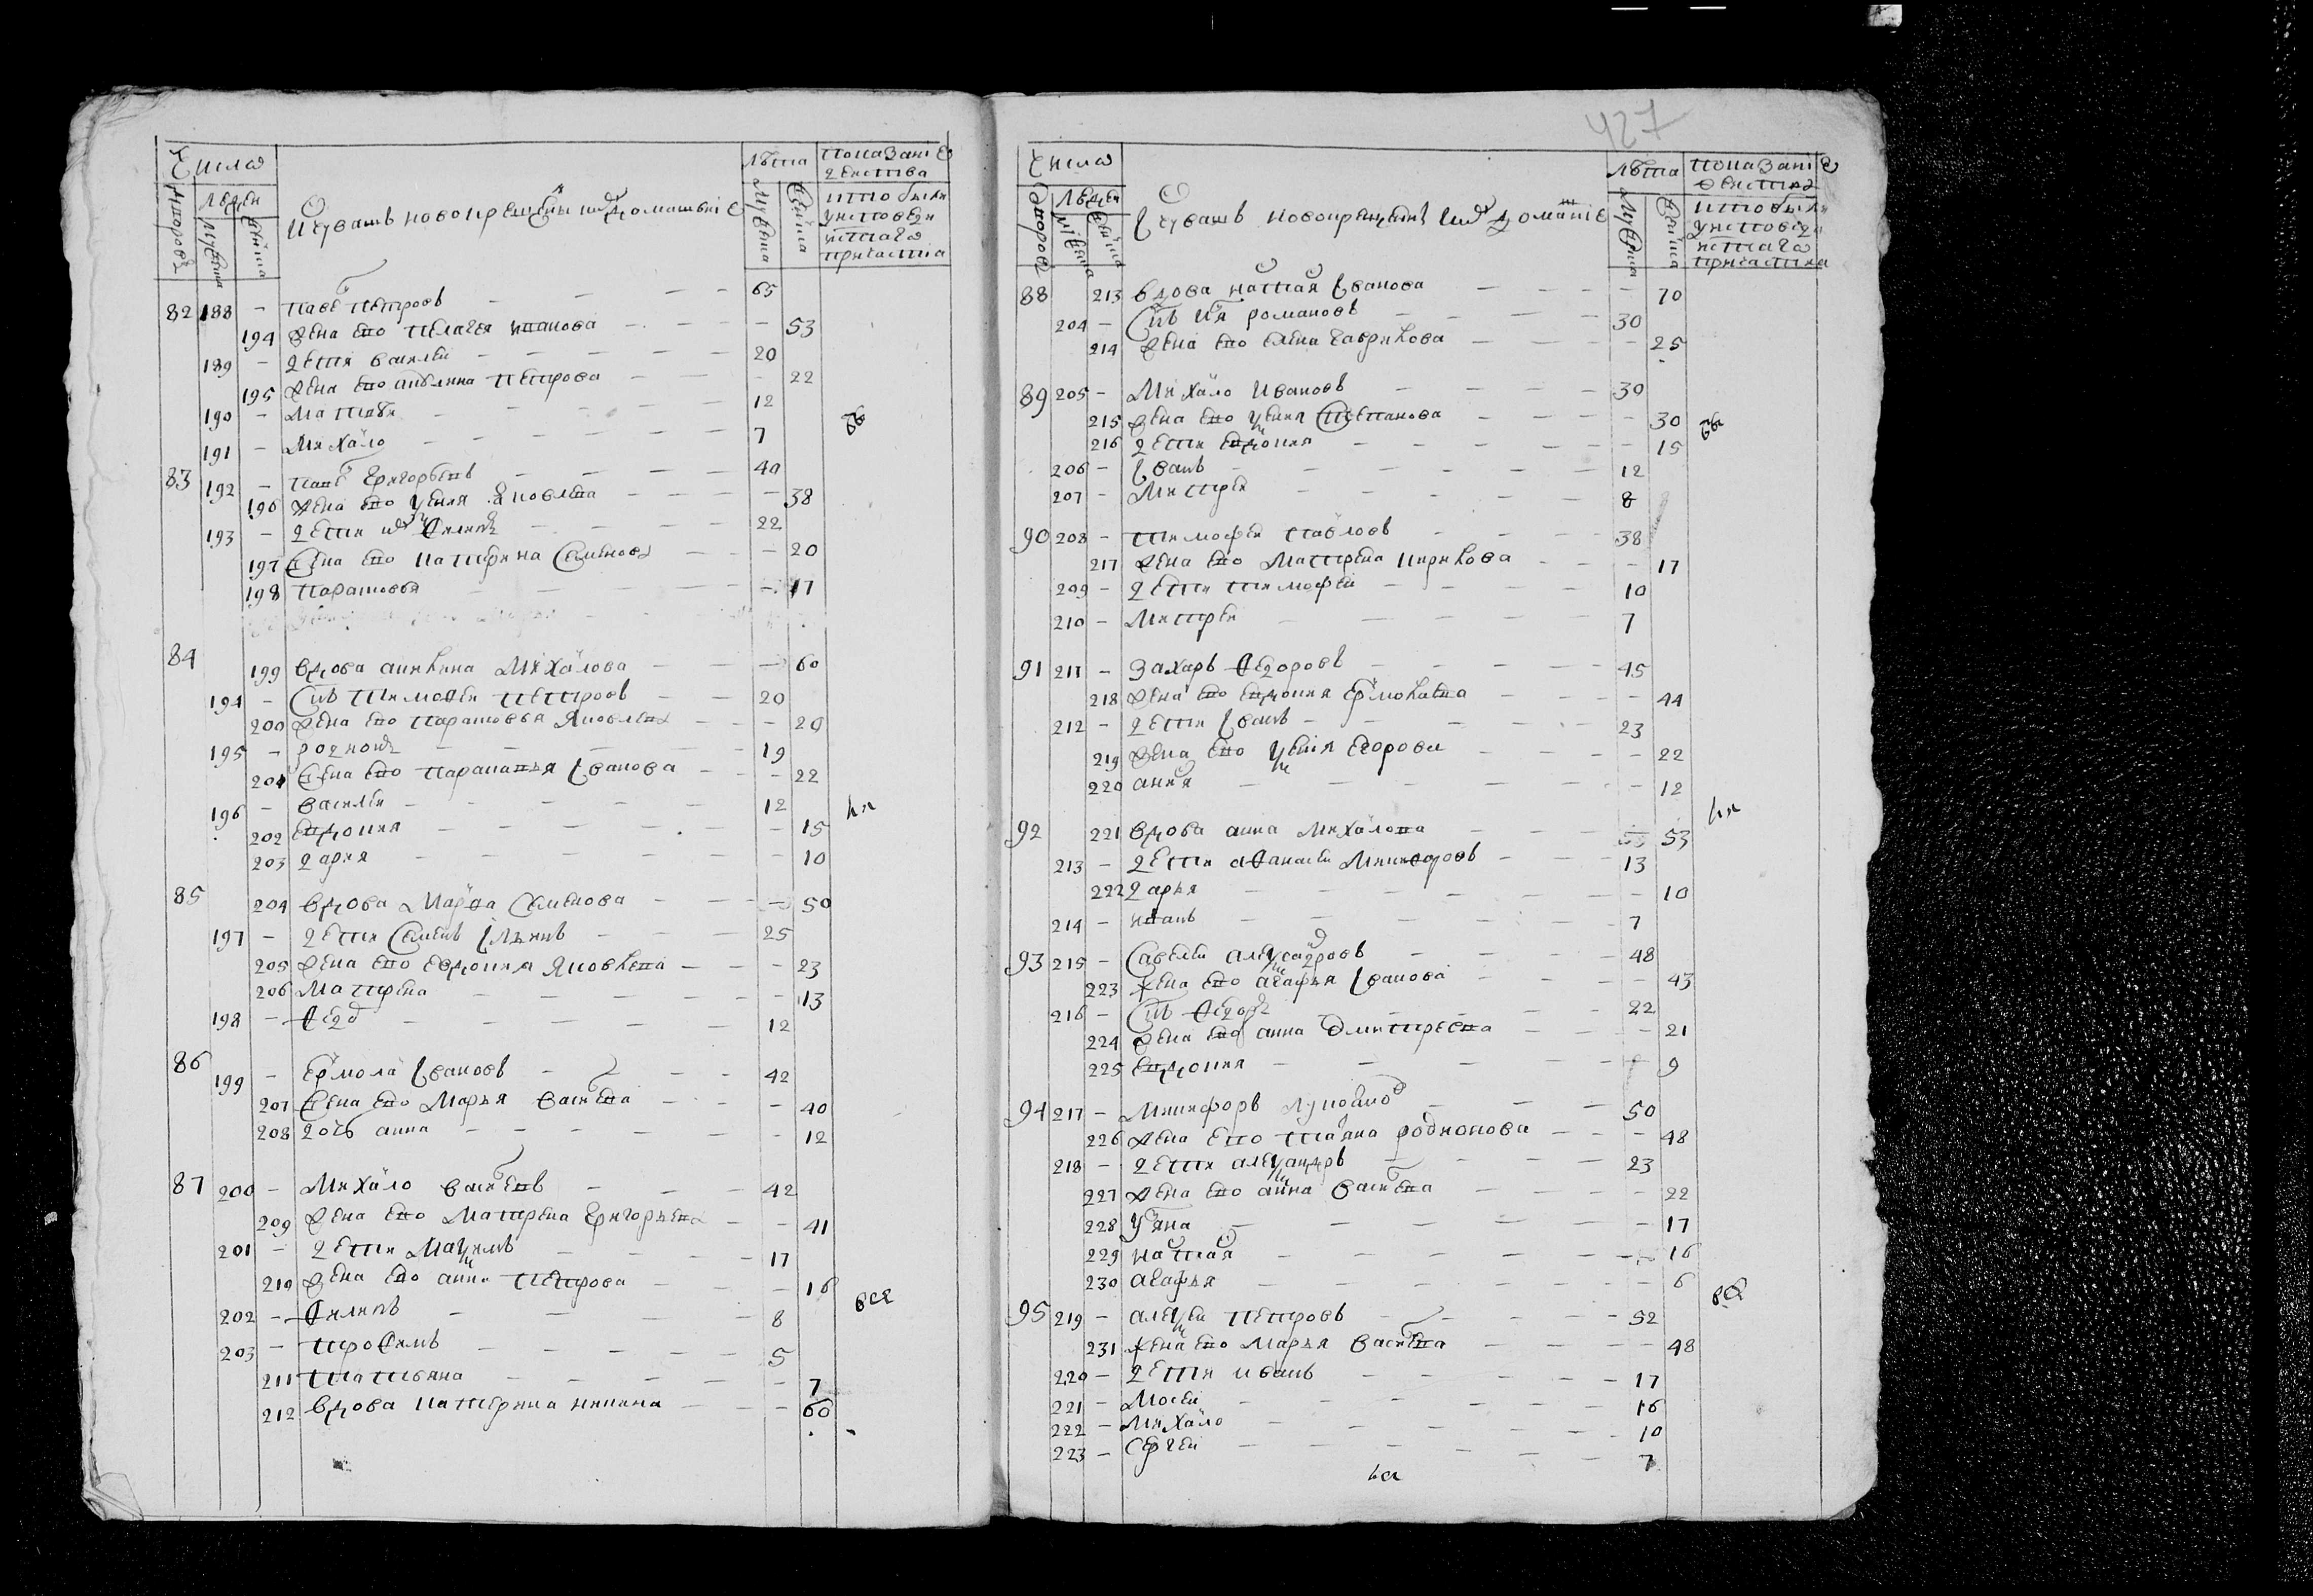 Числа
Людеи
дворовъ
мужеска
женска
И чувашъ новокрещены и ихъ домашние
Лѣта
мужеска
женска
показание
деиства
кто былъ
у исповеди
и стаго
причастиа
82 188 – Павелъ Петровъ – 65
194 жена ево Пелагея иванова – 53
189 – дети Василеи – 20
195 жена ево Акулина Петрова – 22
190 – Матвеи – 12
191 – Михаило – 7
83 192 – Павелъ Григорьевъ – 40
196 жена ево Ксения Яковлева – 38
193 – дети ихъ Филипъ – 22
197 жена ево Катерина Семенова – 20
198 Парасковья – 17
84 199 вдова аникина Михаилова – 60
194 – Сынъ Тимофеи Петровъ – 20
200 жена ево Парасковья Яковлева – 20
195 – родионъ – 19
201 жена ево Парасковья Иванова – 22
196 – Василеи – 12
202 Евдокия – 15
203 дария – 10
85 204 вдова Марфа Семенова – 50
197 – дети Семенъ Ильинъ – 25
205 жена ево Евдокия Яковлева – 23
206 Матрена – 13
198 – Федоръ – 12
86 199 – Ермола Ивановъ – 42
207 жена ево Марья Васильева – 40
208 дочь анна – 12
87 200 – Михаило Васильевъ – 42
209 жена ево Матрена Григорьева – 41
201 – дети Максимъ – 17
210 жена ево анна Петрова – 16
202 – Филипъ – 8
203 – Трофимъ – 5
211 Татьяна – 7
212 вдова Катерина никина – 60
бы
ли
вся
427
Числа
Людеи
дворовъ
мужеска
женска
И чувашъ новокрещены и ихъ домашние
Лѣта
мужеска
женска
показание
деиства
кто былъ
у исповеди
и стаго
причастиа
88 213 вдова Настасия Иванова – 70
204 – Сынъ Илья романовъ – 30
214 жена ево елена Гаврилова – 25
89 205 – Михаило Ивановъ – 30
215 жена ево Ксения Степанова – 30
216 дети Евдокия – 15
206 – Иванъ – 12
207 – Митреи – 8
90 208 – Тимофеи Павловъ – 38
217 жена ево Матрена Кирилова – 17
209 – дети Тимофеи – 10
210 – Митреи – 7
91 211 – Захаръ Федоровъ – 45
218 жена ево Евдокия Ермолаева – 44
212 – дети Иванъ – 23
219 жена ево Ксения Егорова – 22
220 Аксиния – 12
92 221 вдова анна Михаилова – 53
213 – дети афанасеи Никифоровъ – 13
222 дарья – 10
214 – иванъ – 7
93 215 – Савелеи Александровъ – 48
223 жена ево агафья Иванова – 43
216 – Сынъ Федоръ – 22
224 жена ево анна Дмитрева – 21
225 Евдокия – 9
94 217 – Никифоръ Лукояновъ – 50
226 жена ево Татьяна родионова – 48
218 – дети александръ – 23
227 жена ево анна Васильева – 22
228 Ульяна – 17
229 Настасия – 16
230 Агафья – 6
95 219 – алексеи Петровъ – 52
231 жена ево Марья Васильева – 48
220 – дети иванъ – 17
221 – Мосеи – 16
222 – Михаило – 10
223 – Сергеи – 7
бы
ли
всѣ